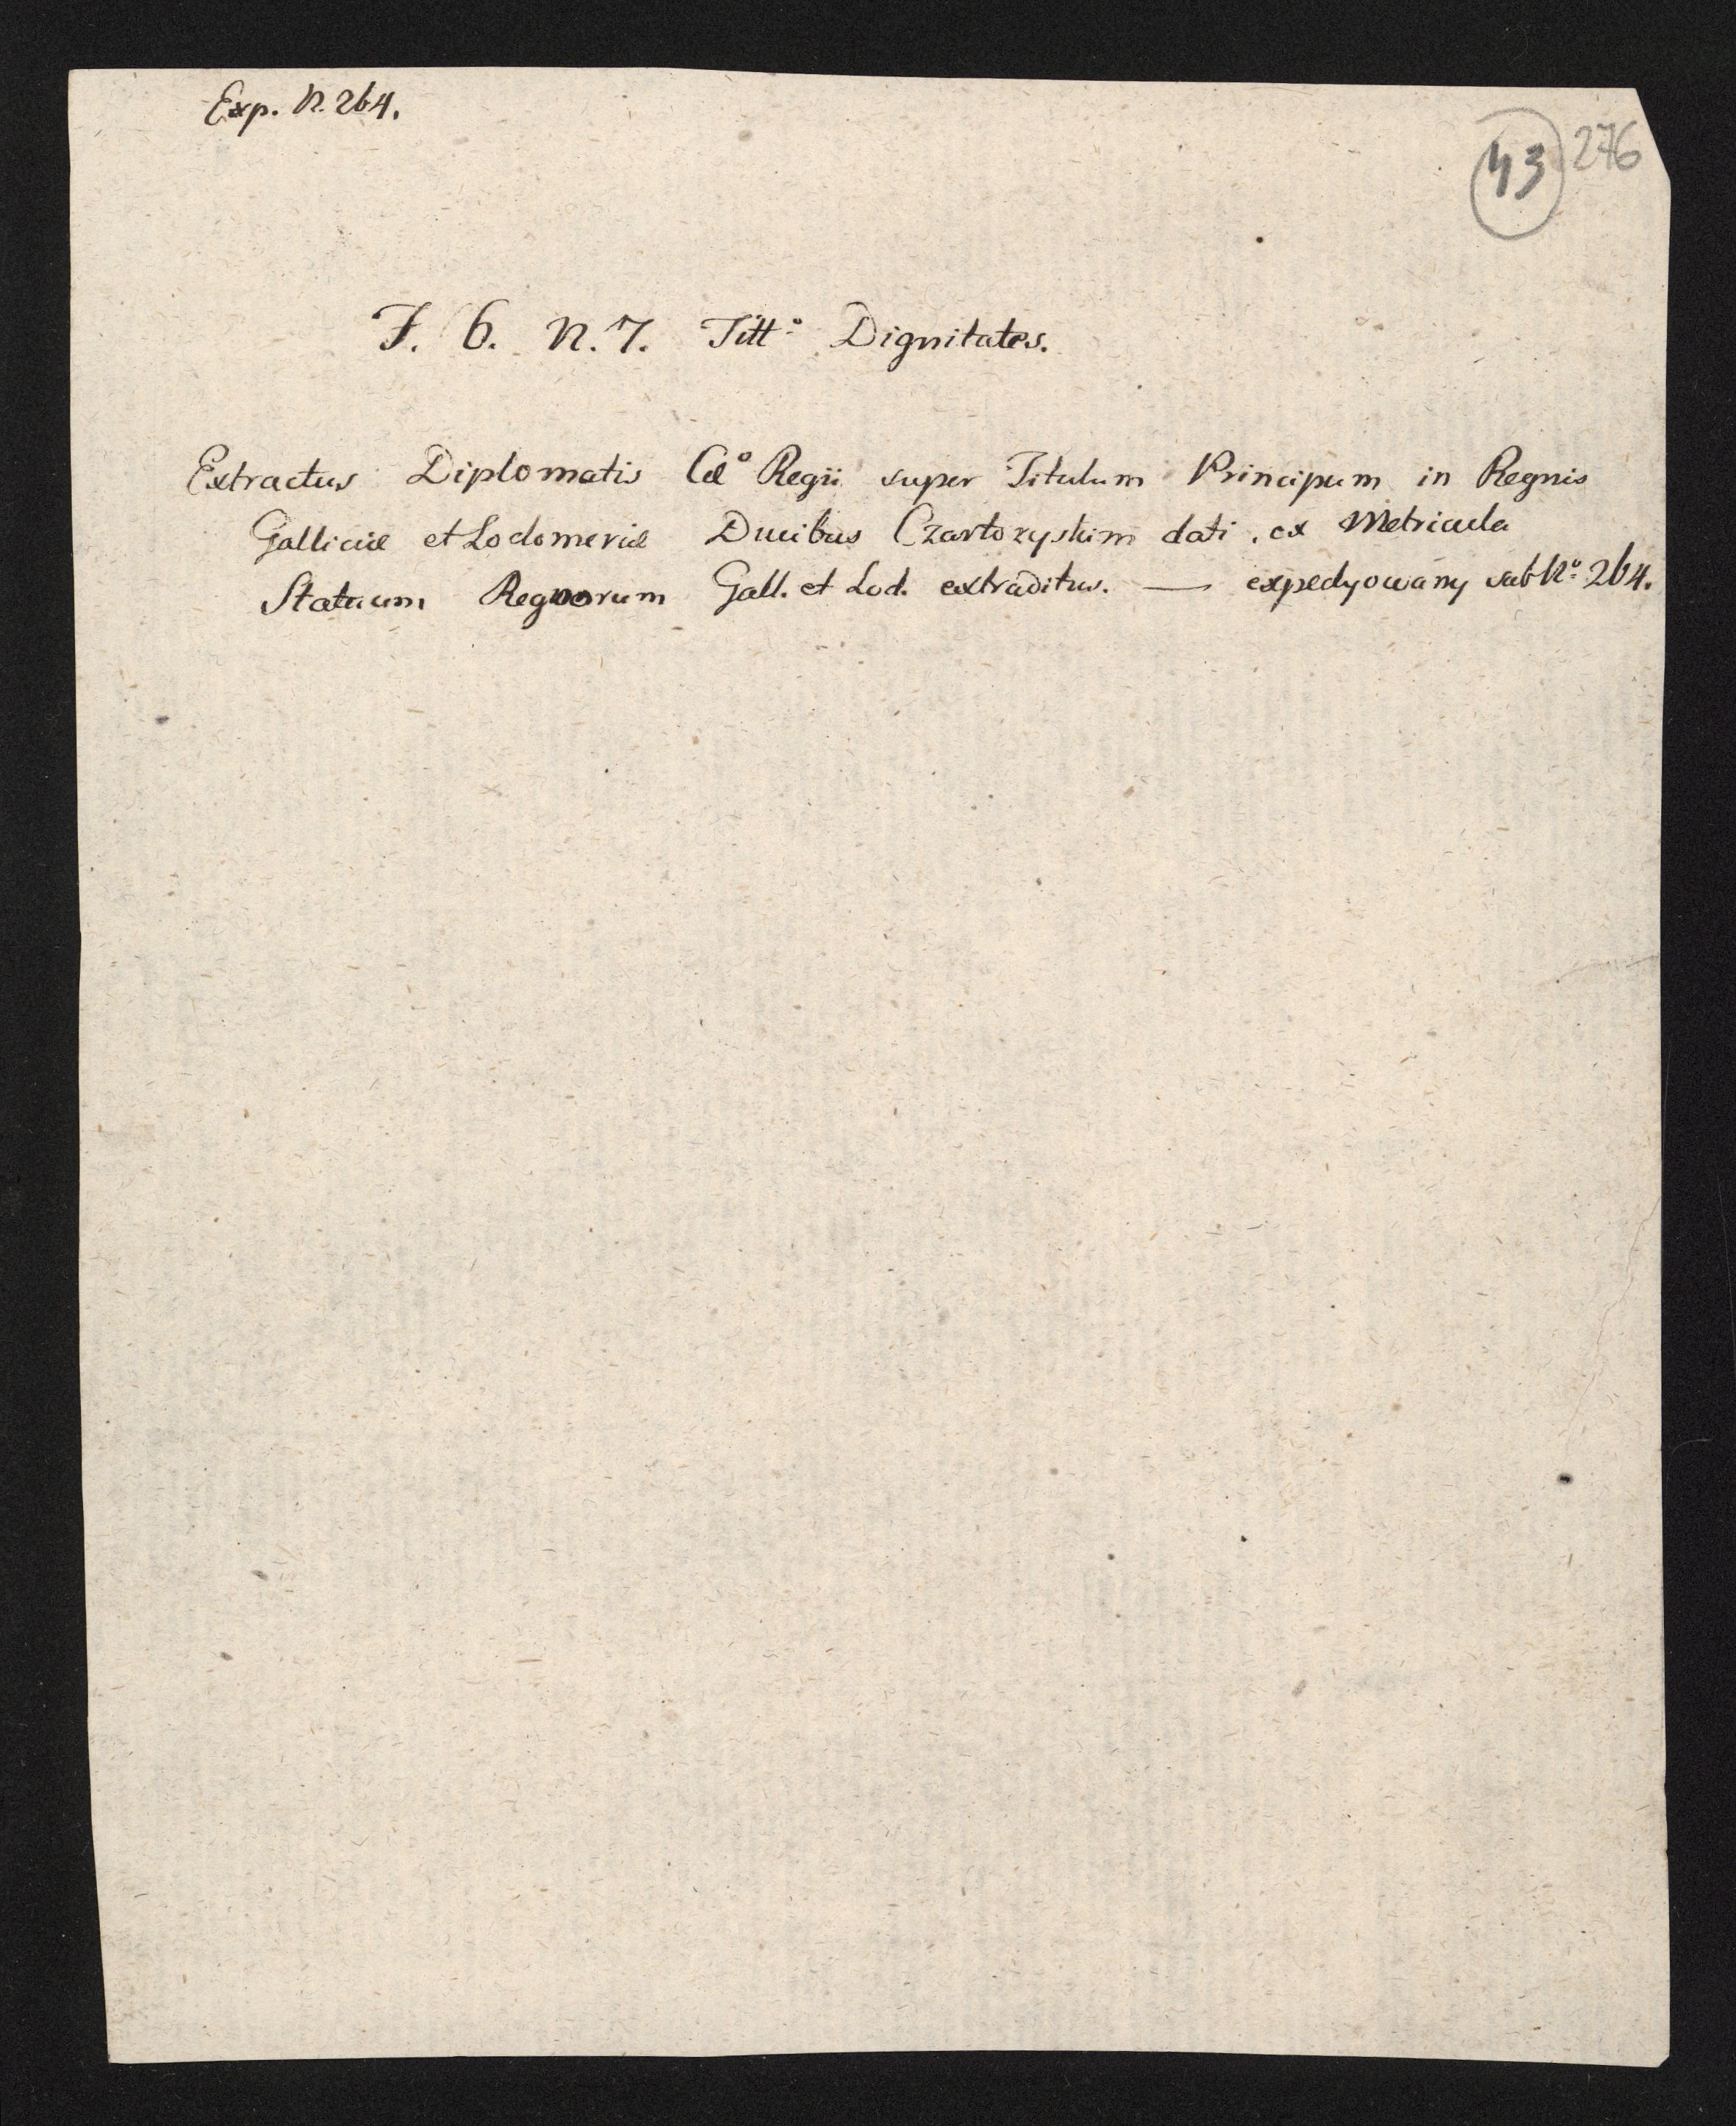 Exp. N. 264.
43 276
F. 6. N. 7. Titt:° Dignitates.
Extractus Diplomatis Cæ° Regii super Titulum Principum in Regnis
Galliciæ et Lodomeriæ Ducibus Czartoryskim dati, ex Metricula
Statuum Regnorum Gall. et Lod. extraditus. — expedyowany sub N°: 264.